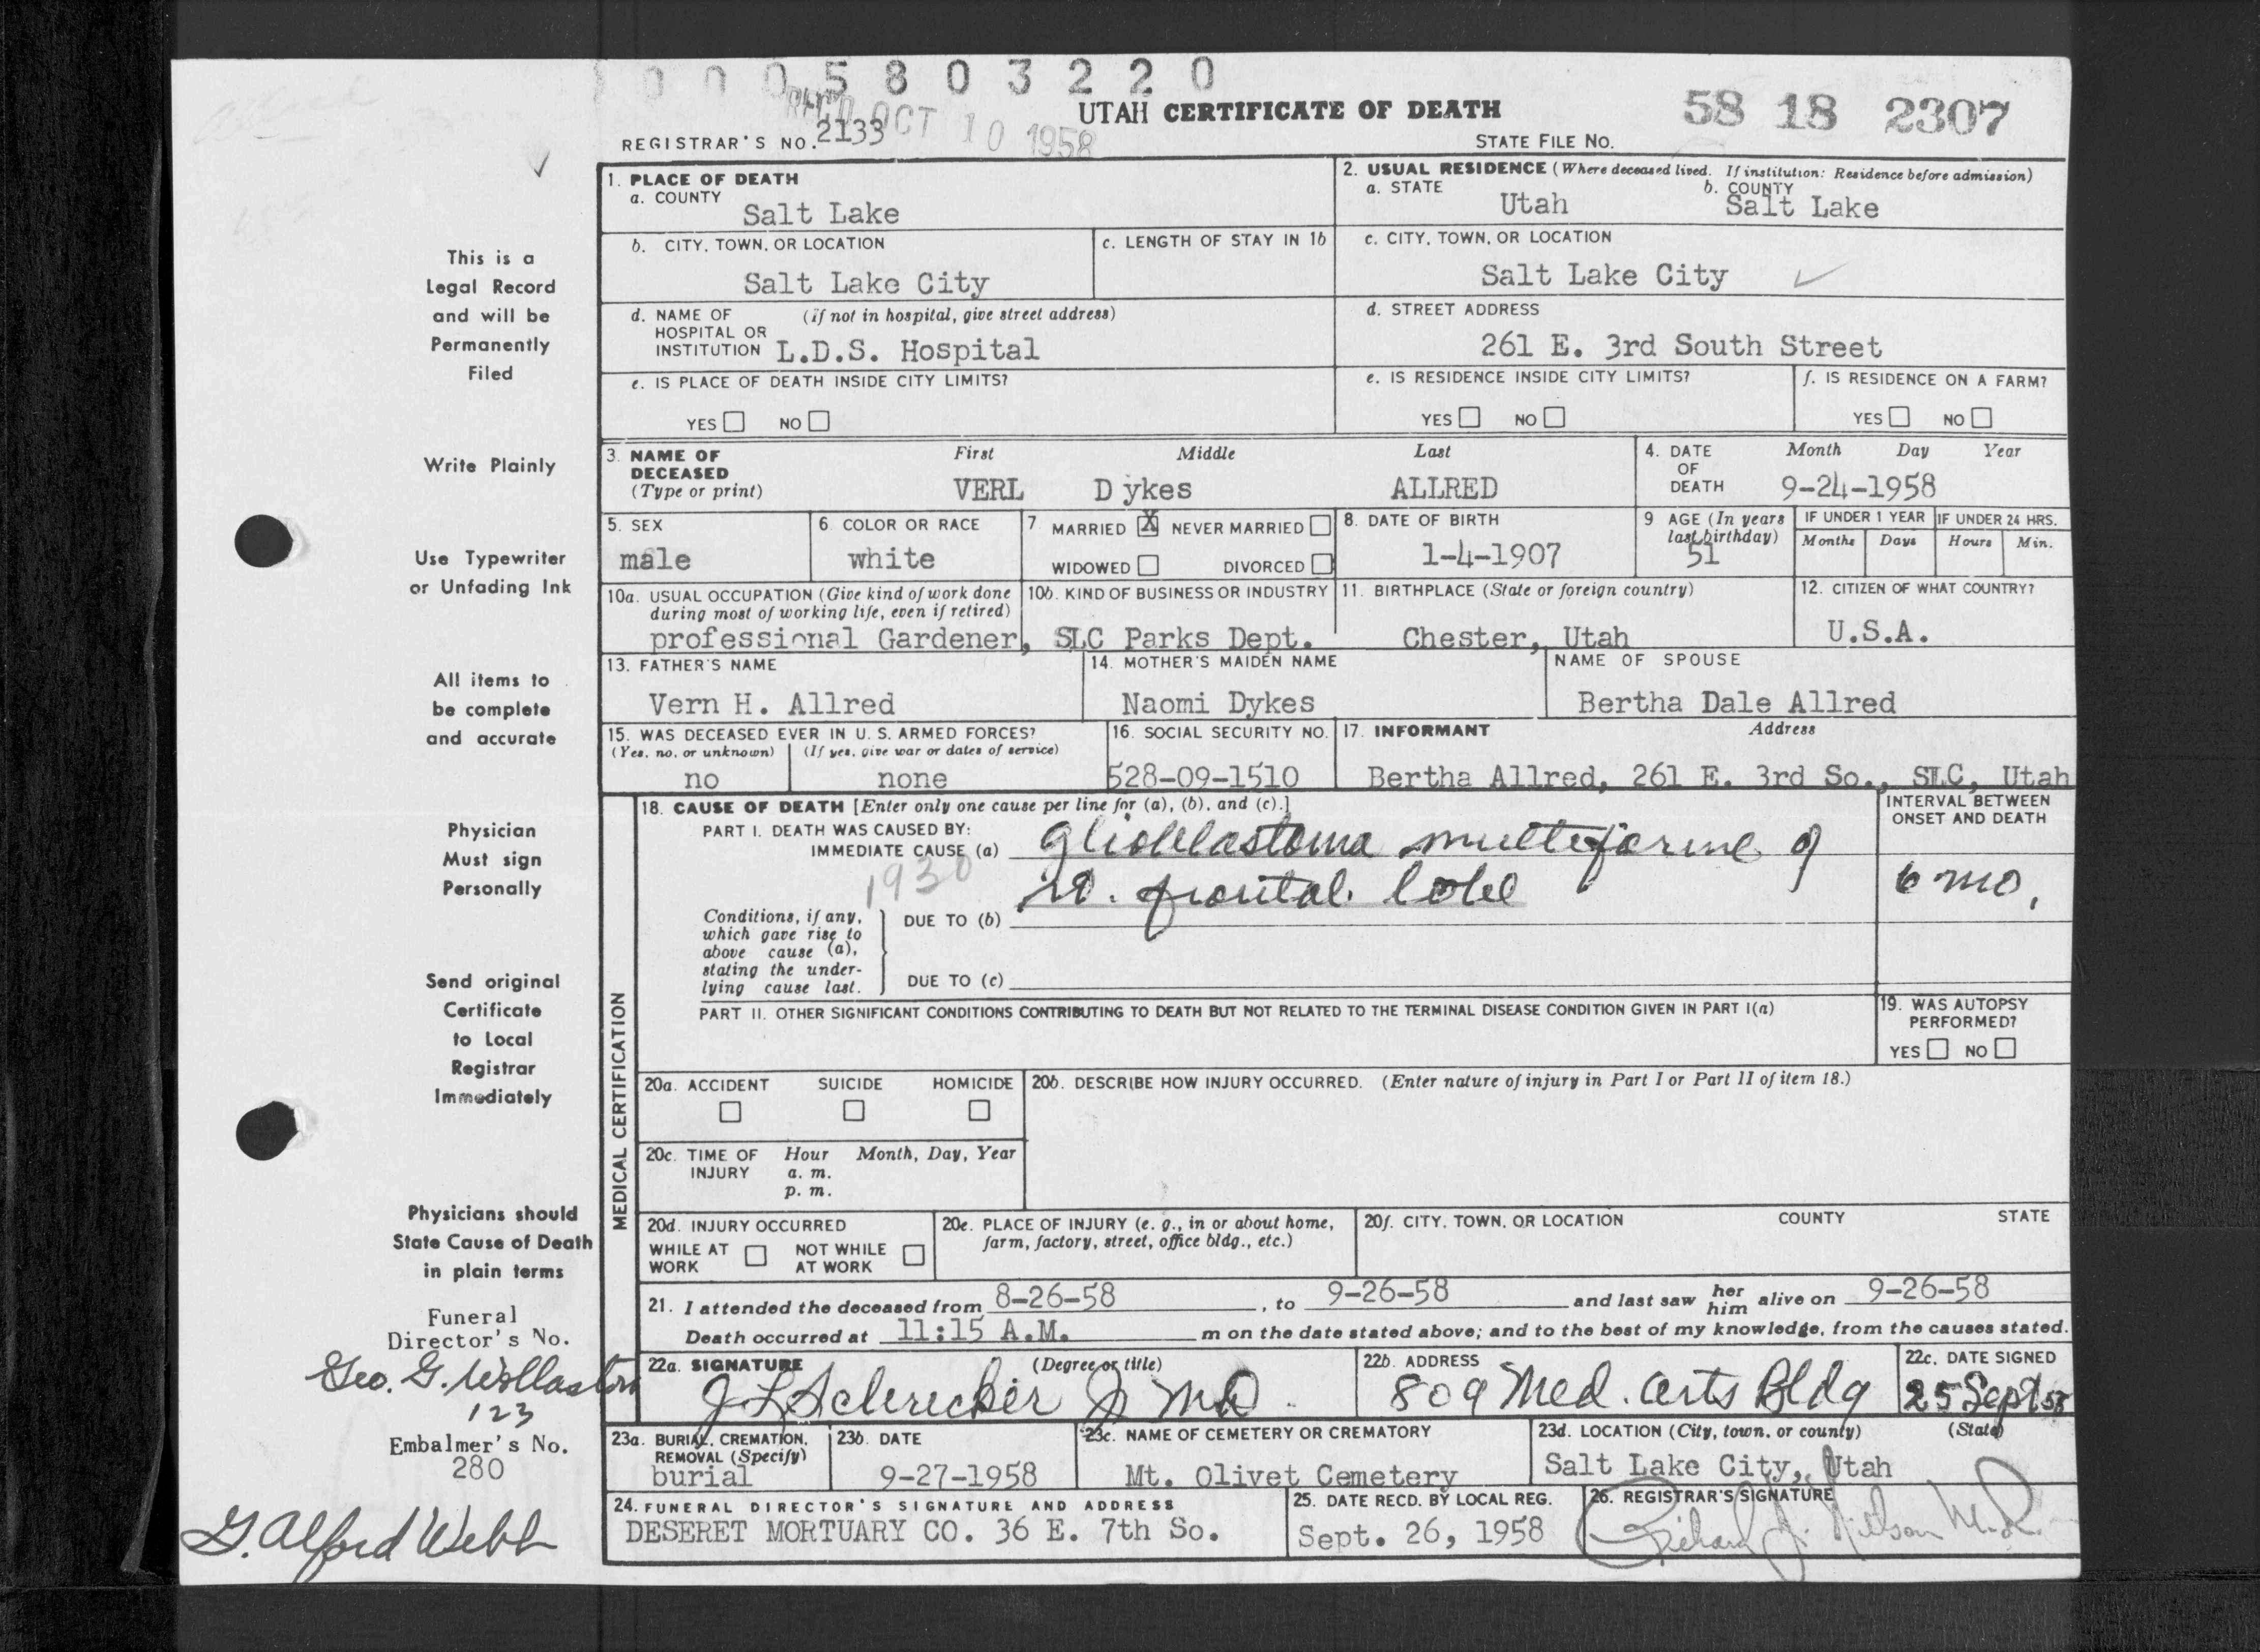 0 0 0 5 8 0 3 2 2 0
REC'D OCT 10 1958
UTAH CERTIFICATE OF DEATH
58 18 2307
REGISTRAR'S NO. 2133
STATE FILE NO.
This is a
Legal Record
and will be
Permanently
Filed
Write Plainly
Use Typewriter
or Unfading Ink
All items to
be complete
and accurate
Physician
Must sign
Personally
Send original
Certificate
to Local
Registrar
Immediately
Physicians should
State Cause of Death
in plain terms
Funeral
Director's No.
Geo. G. Wollaston
123
Embalmer's No.
280
G. Alford Webb
1. PLACE OF DEATH
a. COUNTY
Salt Lake
2. USUAL RESIDENCE (Where deceased lived. If institution: Residence before admission)
a. STATE
Utah
b. COUNTY
Salt Lake
b. CITY, TOWN, OR LOCATION
Salt Lake City
c. LENGTH OF STAY IN 1b
c. CITY, TOWN, OR LOCATION
Salt Lake City
d. NAME OF (if not in hospital, give street address)
HOSPITAL OR
INSTITUTION L.D.S. Hospital
d. STREET ADDRESS
261 E. 3rd South Street
e. IS PLACE OF DEATH INSIDE CITY LIMITS?
YES NO
e. IS RESIDENCE INSIDE CITY LIMITS?
YES NO
f. IS RESIDENCE ON A FARM?
YES NO
3. NAME OF First Middle Last
DECEASED
(Type or print) VERL Dykes ALLRED
4. DATE Month Day Year
OF
DEATH 9-24-1958
5. SEX
male
6. COLOR OR RACE
white
7. MARRIED X NEVER MARRIED
WIDOWED DIVORCED
8. DATE OF BIRTH
1-4-1907
9. AGE (In years
last birthday)
51
IF UNDER 1 YEAR
Months Days
IF UNDER 24 HRS.
Hours Min.
10a. USUAL OCCUPATION (Give kind of work done
during most of working life, even if retired)
professional Gardener,
10b. KIND OF BUSINESS OR INDUSTRY
SLC Parks Dept.
11. BIRTHPLACE (State or foreign country)
Chester, Utah
12. CITIZEN OF WHAT COUNTRY?
U.S.A.
13. FATHER'S NAME
Vern H. Allred
14. MOTHER'S MAIDEN NAME
Naomi Dykes
NAME OF SPOUSE
Bertha Dale Allred
15. WAS DECEASED EVER IN U. S. ARMED FORCES?
(Yes, no, or unknown) (If yes, give war or dates of service)
no none
16. SOCIAL SECURITY NO.
528-09-1510
17. INFORMANT Address
Bertha Allred, 261 E. 3rd So., SLC, Utah
MEDICAL CERTIFICATION
18. CAUSE OF DEATH [Enter only one cause per line for (a), (b), and (c).]
INTERVAL BETWEEN
ONSET AND DEATH
PART I. DEATH WAS CAUSED BY:
IMMEDIATE CAUSE (a) glioblastoma multiforme of
1930
rt. frontal lobe
6 mo.
Conditions, if any,
which gave rise to
above cause (a),
stating the under-
lying cause last.
DUE TO (b)
DUE TO (c)
PART II. OTHER SIGNIFICANT CONDITIONS CONTRIBUTING TO DEATH BUT NOT RELATED TO THE TERMINAL DISEASE CONDITION GIVEN IN PART I(a)
19. WAS AUTOPSY
PERFORMED?
YES NO
20a. ACCIDENT SUICIDE HOMICIDE
20b. DESCRIBE HOW INJURY OCCURRED. (Enter nature of injury in Part I or Part II of item 18.)
20c. TIME OF Hour Month, Day, Year
INJURY a. m.
p. m.
20d. INJURY OCCURRED
WHILE AT NOT WHILE
WORK AT WORK
20e. PLACE OF INJURY (e. g., in or about home,
farm, factory, street, office bldg., etc.)
20f. CITY, TOWN, OR LOCATION COUNTY STATE
21. I attended the deceased from 8-26-58, to 9-26-58 and last saw her him alive on 9-26-58
Death occurred at 11:15 A.M. m on the date stated above; and to the best of my knowledge, from the causes stated.
22a. SIGNATURE (Degree or title)
MD
22b. ADDRESS
809 Med. Arts Bldg
22c. DATE SIGNED
25 Sept 58
23a. BURIAL, CREMATION,
REMOVAL (Specify)
burial
23b. DATE
9-27-1958
23c. NAME OF CEMETERY OR CREMATORY
Mt. Olivet Cemetery
23d. LOCATION (City, town, or county) (State)
Salt Lake City, Utah
24. FUNERAL DIRECTOR'S SIGNATURE AND ADDRESS
DESERET MORTUARY CO. 36 E. 7th So.
25. DATE RECD. BY LOCAL REG.
Sept. 26, 1958
26. REGISTRAR'S SIGNATURE
Richard J. Nielson M.D.